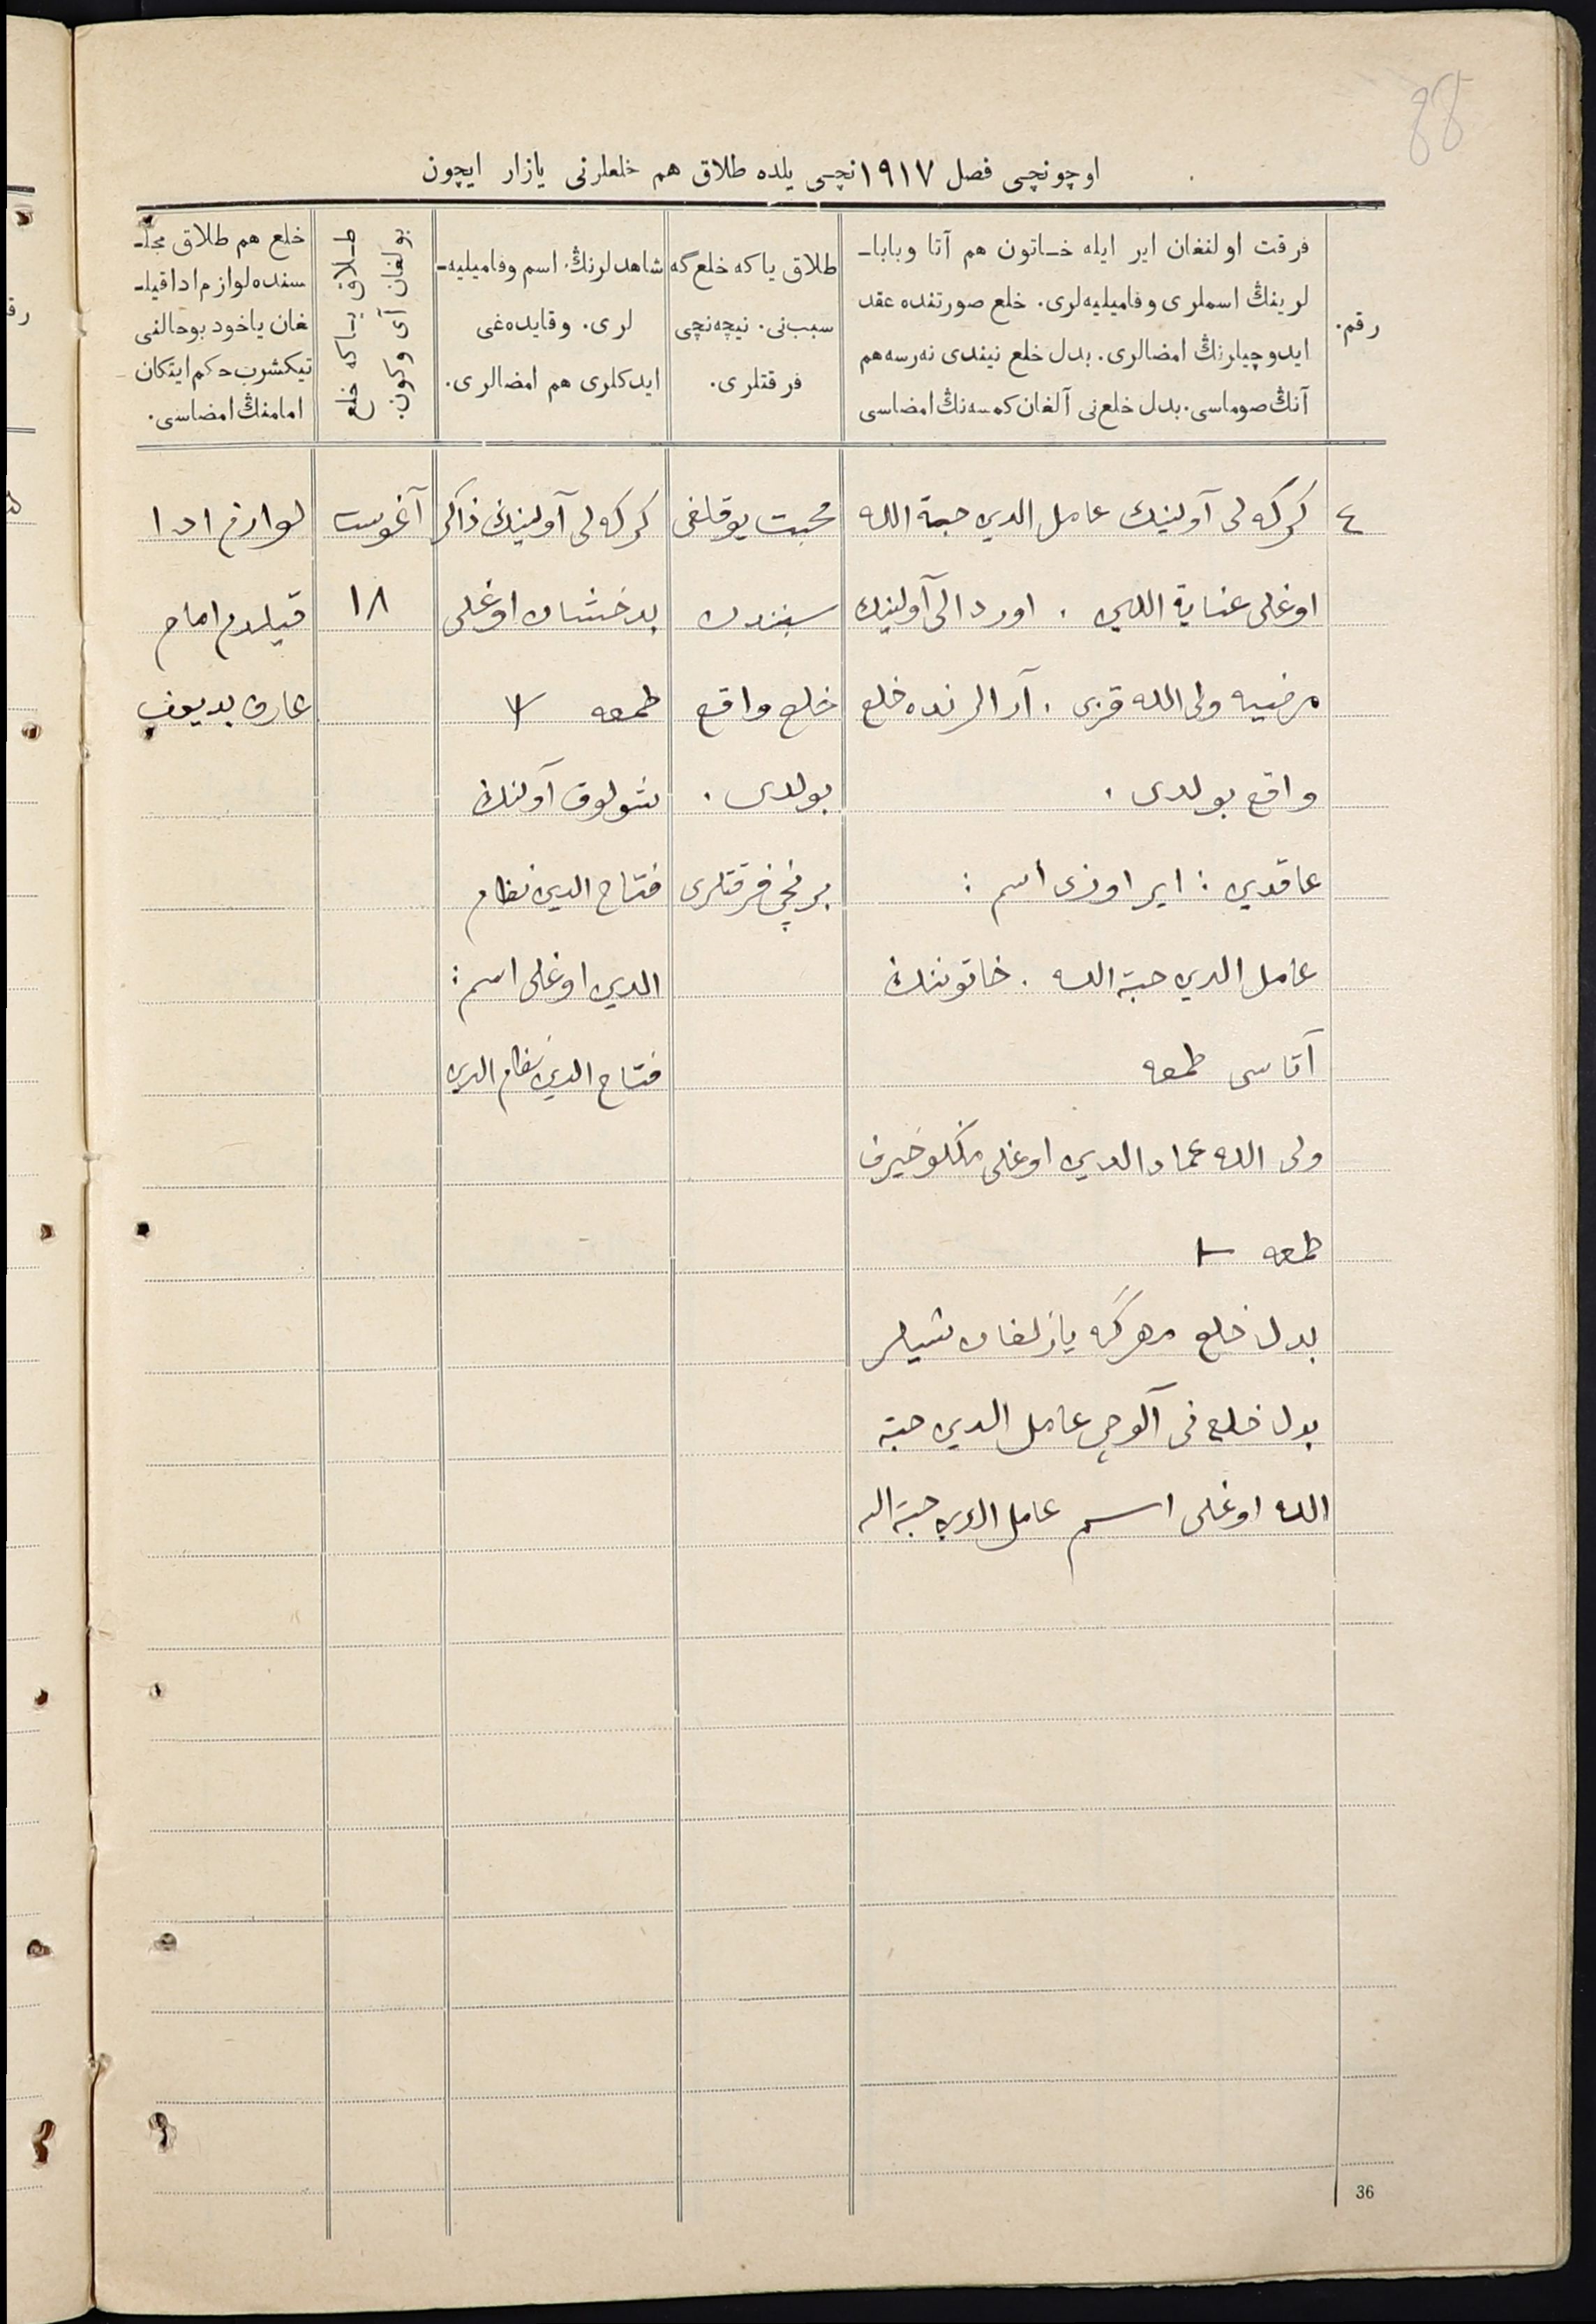 88
اوچونچی فصل ١٩١٧نچی یلده طلاق هم خلعلرنی یازار ایچون
رقم.
فرقت اولنغان ایر ایله خـاتون هم آتا وباباـ
لرینڭ اسملری وفامیلیه‌لری. خلع صورتنده عقد
ایدوچیلرنڭ امضالری. بدل خلع نیندی نه‌رسه‌هم
آنڭ صوماسی. بدل خلع‌نی آلغان کمسه‌نڭ امضاسی
طلاق یا که خلع گه
سبب‌نی. نیچه‌نچی
فرقتلری.
شاهدلرنڭ اسم وفامیلیه‌ـ
لری. وقایده‌غی
ایدکلری هم امضالری.
طـلاق یـاکه خلع
بولغان آی وکون.
خلع هم طلاق مجلـ
سنده لوازم ادا قیلـ
غان یاخود بوحالنی
تیکشرب حکم ایتکان
امامنڭ امضاسی.
٤
کرکه لی آولینڭ عامل الدین حبة الله
اوغلی عنایة اللهی . اوردالی آولینڭ
مرضیه ولی الله قزی . آرالرنده خلع
واقع بولدی .
عاقدین : ایر اوزی اسم :
عامل الدین حبة الله . خاتوننڭ
آتاسی طمعه
ولی الله عماد الدین اوغلی
طمعه
بدل خلع مهرگه یازلغان شیلر
بدل خلع نی آلوچی عامل الدین حبة
الله اوغلی اسم عامل الدین حبة الله
محبت یوقلغی
سببندن
خلع واقع
بولدی .
برنچی فرقتلری
کرکه لی آولینڭ ذاکر
بدخشان اوغلی
طمعه
آولنڭ
فتاح الدین نظام
الدین اوغلی اسم :
فتاح الدین نظام الدین
آغوست
١٨
لوازم ادا
قیلدم امام
عارف بدیعوف
36